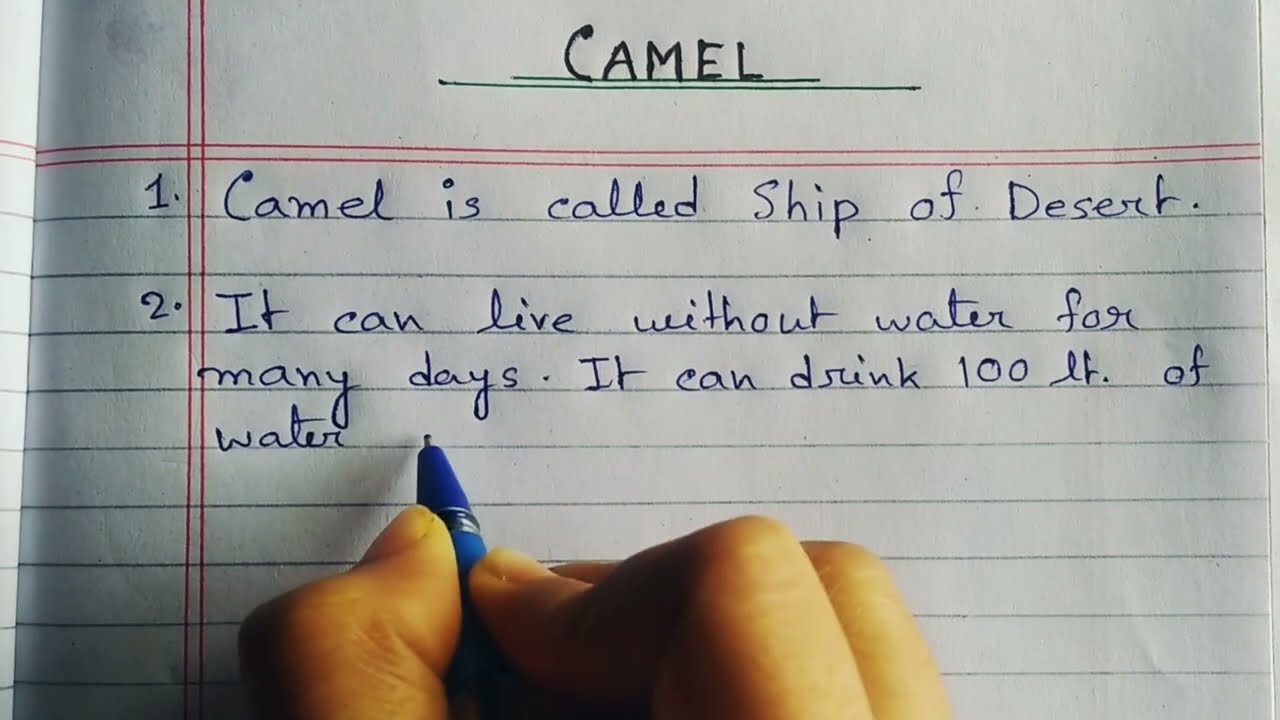 CAMEL
1. Camel is called Ship of Desert.
2. It can live without water for
many days. It can drink 100 lt. of
water